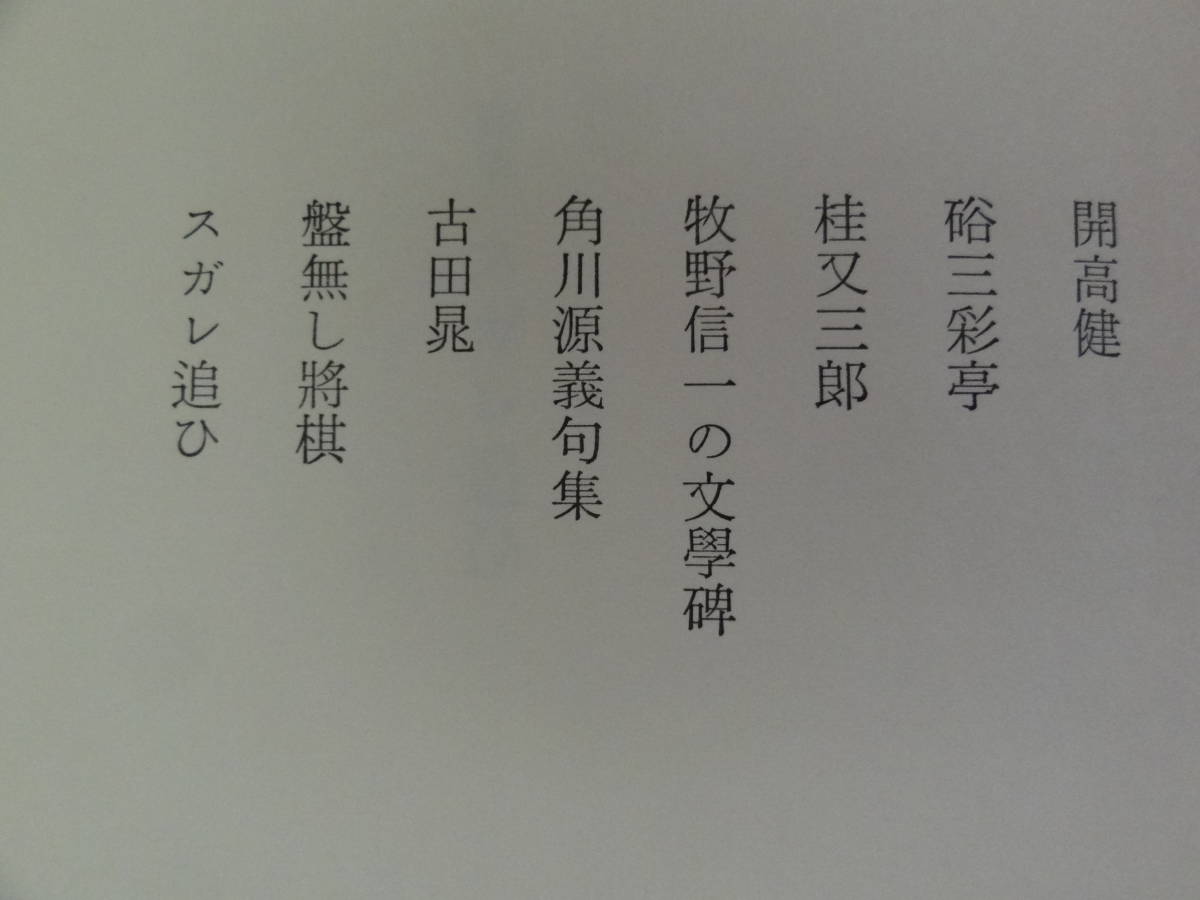 開高健
硲三彩亭
桂又三郎
牧野信一の文學碑
角川源義句集
古田晁
盤無し將棋
スガレ追ひ